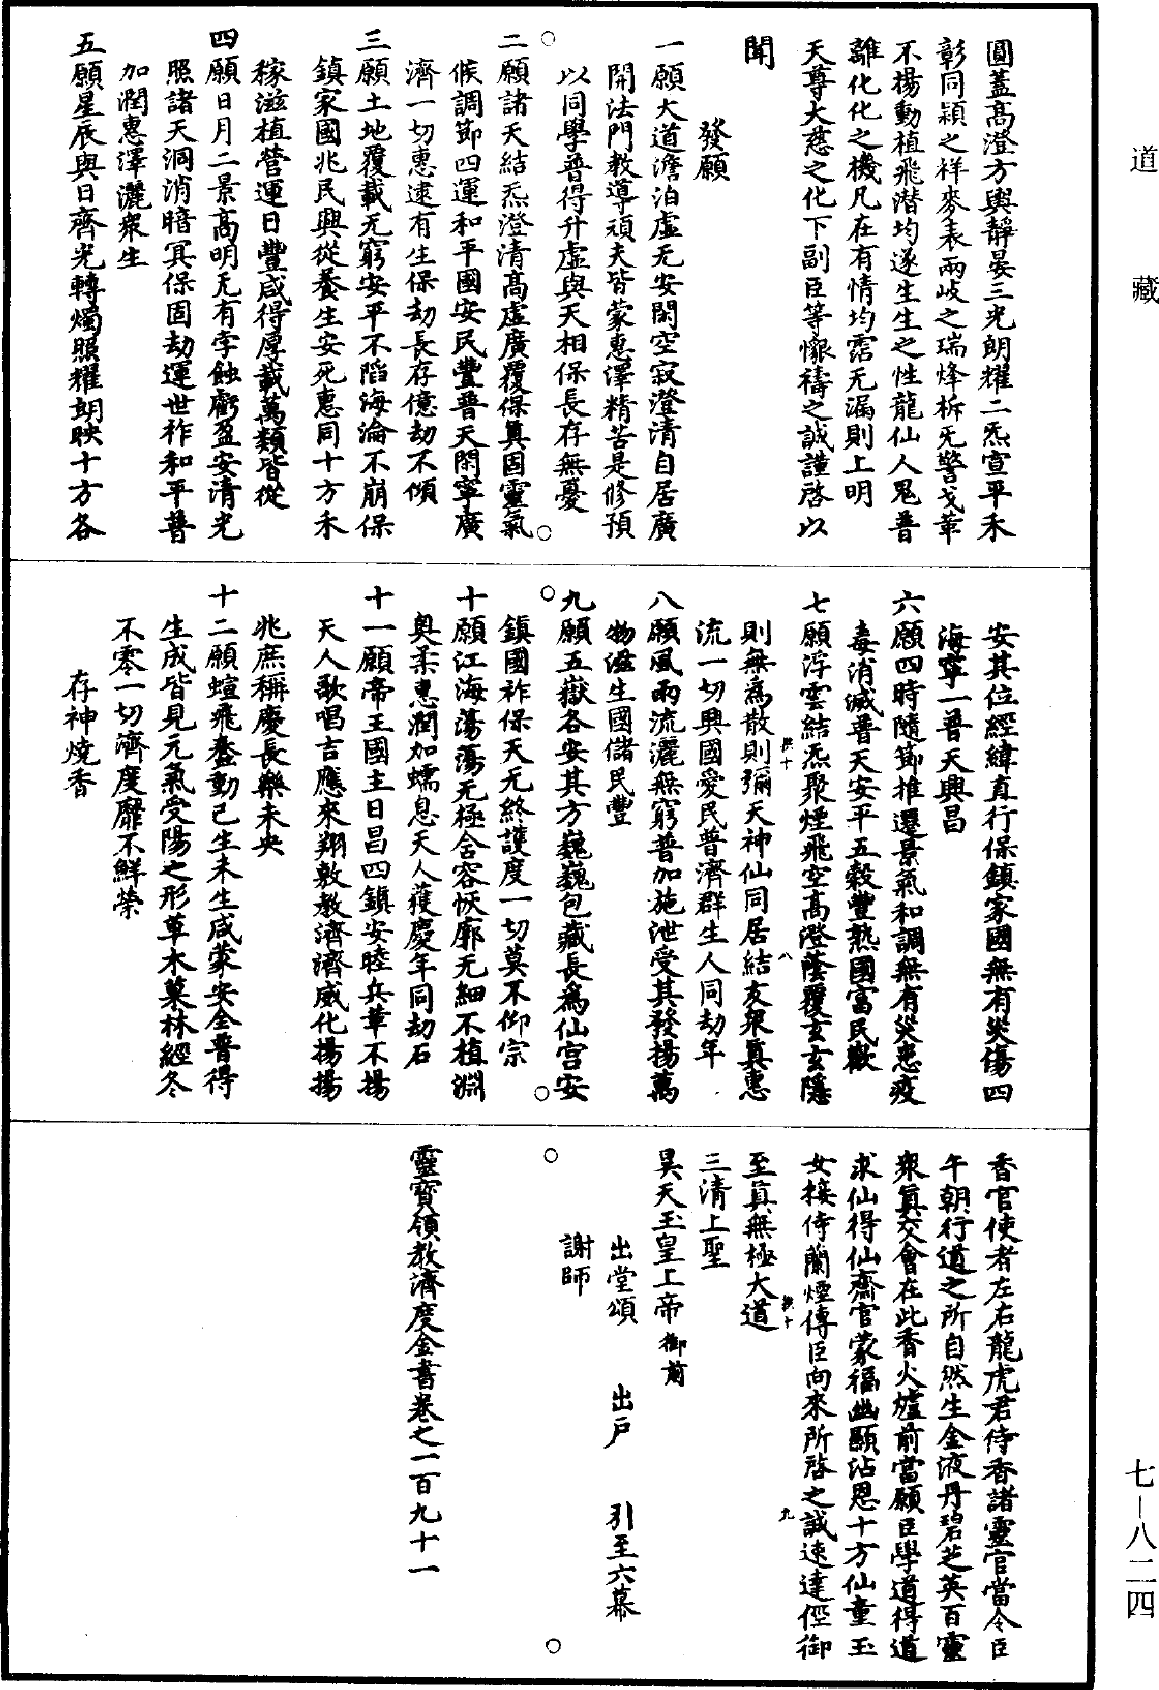 道藏
七—八二四
圓蓋高澄方輿靜晏三光朗耀二炁宣平禾
彰同穎之祥麥表兩岐之瑞烽柝无警戈革
不揚動植飛潛均遂生生之性龍仙人鬼普
離化化之機凡在有情均霑无漏則上明
天尊大慈之化下副臣等懺禱之誠謹啓以
聞
發願
一願大道澹泊虛无安閑空寂澄清自居廣
開法門教導頑夫皆蒙惠澤精苦是修預
以同學普得升虛與天相保長存無憂
二願諸天結炁澄清高虛廣覆保真固靈氣
候調節四運和平國安民豐普天閑寧廣
濟一切惠逮有生保劫長存億劫不傾
三願土地覆載无窮安平不陷海淪不崩保
鎮家國兆民興從養生安死惠同十方禾
稼滋植營運日豐咸得厚載萬類皆從
四願日月二景高明无有孛蝕虧盈安清光
照諸天洞消暗冥保固劫運世祚和平普
加潤惠澤灑衆生
五願星辰與日齊光轉燭照耀朗映十方各
安其位經緯直行保鎮家國無有災傷四
海寧一普天興昌
六願四時隨節推遷景氣和調無有災患疫
毒消滅普天安平五穀豐熟國富民歡
七願浮雲結炁聚煙飛空高澄蔭覆玄玄隱
則無爲散則彌天神仙同居結友衆真惠
流一切興國愛民普濟群生人同劫年
八願風雨流灑無窮普加施泄受其發揚萬
物滋生國儲民豐
九願五嶽各安其方巍巍包藏長爲仙宫安
鎮國祚保天无終護度一切莫不仰宗
十願江海蕩蕩无極含容恢廓无細不植淵
奥柔惠潤加蠕息天人獲慶年同劫石
十一願帝王國主日昌四鎮安睦兵革不揚
天人歌唱吉應來翔敷教濟濟威化揚揚
兆庶稱慶長樂未央
十二願蝖飛蠢動已生未生咸蒙安全普得
生成皆見元氣受陽之形草木菓林經冬
不零一切濟度靡不鮮榮
存神燒香
香官使者左右龍虎君侍香諸靈官當令臣
午朝行道之所自然生金液丹碧芝英百靈
衆真交會在此香火爐前當願臣學道得道
求仙得仙齋官蒙福幽顯沾恩十方仙童玉
女接侍蘭煙傳臣向來所啓之誠速達徑御
至真無極大道
三清上聖
昊天玉皇上帝御前
出堂頌 出戶 引至六幕
謝師
靈寶領教濟度金書卷之一百九十一